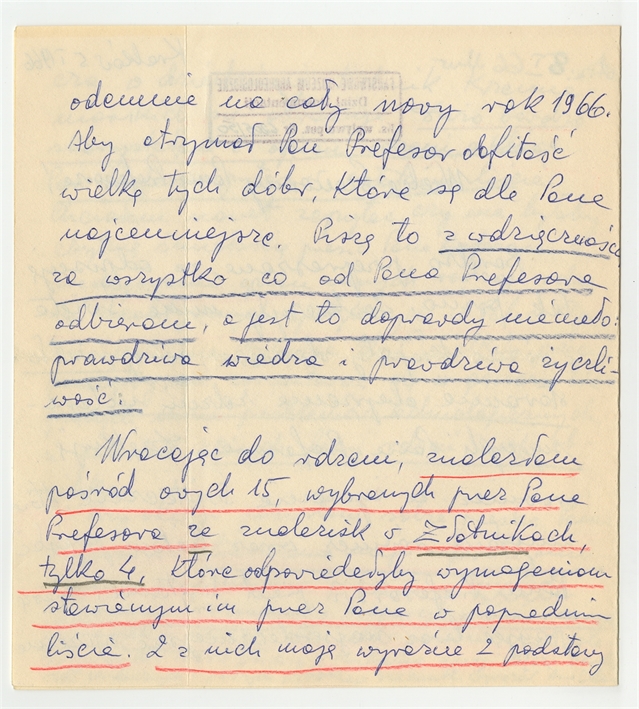 odemnie na cały nowy rok 1966.
Aby otrzymał Pan Profesor obfitość
wielką tych dóbr, które są dla Pana
najcenniejsze. Piszę to z wdzięczności
za wszystko co od Pana Profesora
odbieram, a jest to doprawdy niemało:
prawdziwa wiedza i prawdziwa życzli-
wość.
Wracając do rdzeni, znalazłam
pośród owych 15, wybranych przez Pana
Profesora ze znalezisk w Złotnikach,
tylko 4, które odpowiadałyby wymaganiom
stawianym im przez Pana w poprzednim
liście. 2 z nich mają wyraźnie 2 podstawy